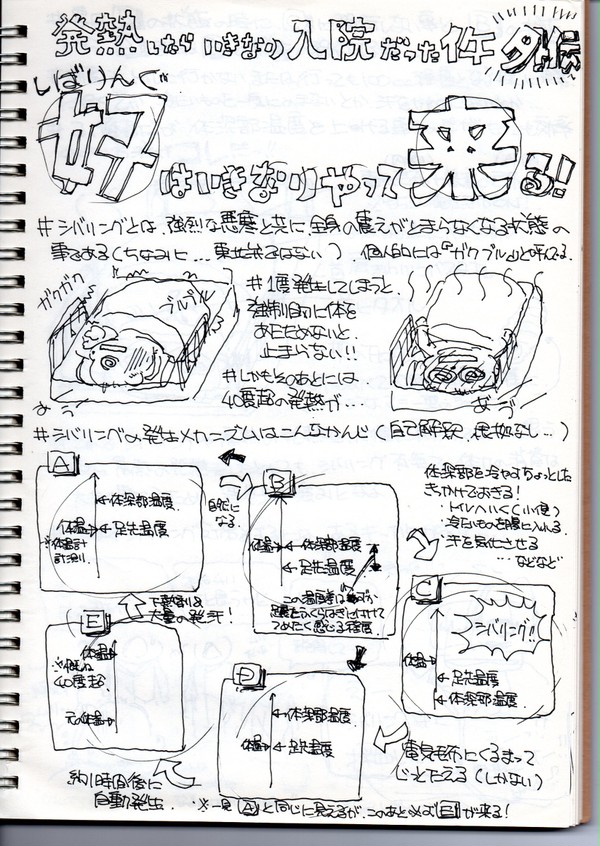 発熱したらいきなり入院だった件 外伝
しばりんぐ
奴はいきなりやって来る!
#シバリングとは、強烈な悪寒と共に全身の震えがとまらなくなる状態の
事である(ちなみに…東北弁ではない) 個人的には『ガクプル』と呼んでる.
ガクガク
ブルブル
#1度発生してしまうと、
強制的に体を
あたためないと
止まらない!!
#しかもそのあとには
40度超の発熱が…
あ゛う゛
あ゛う゛
#シバリングの発生メカニズムはこんなかんじ(自己解釈、根拠なし…)
A
体温
足先温度
※体温計
自然に
なる
B
体温
足先温度
この温度差は
つめたく感じる程度.
ちょっとした
きっかけでおきる!
・トイレへいく(小便)
・冷たいものを腸に入れる
・汗を気化させる
…などなど
C
シバリング!!
体温
足先温度
電気毛布にくるまって
じっとたえる(しかない)
D
体温
足先温度
※一見Aと同じに見えるが、このあと必ずEが来る!
約1時間後に
自動発生.
E
体温
40度超
元の体温
下熱剤&
大量の発汗!